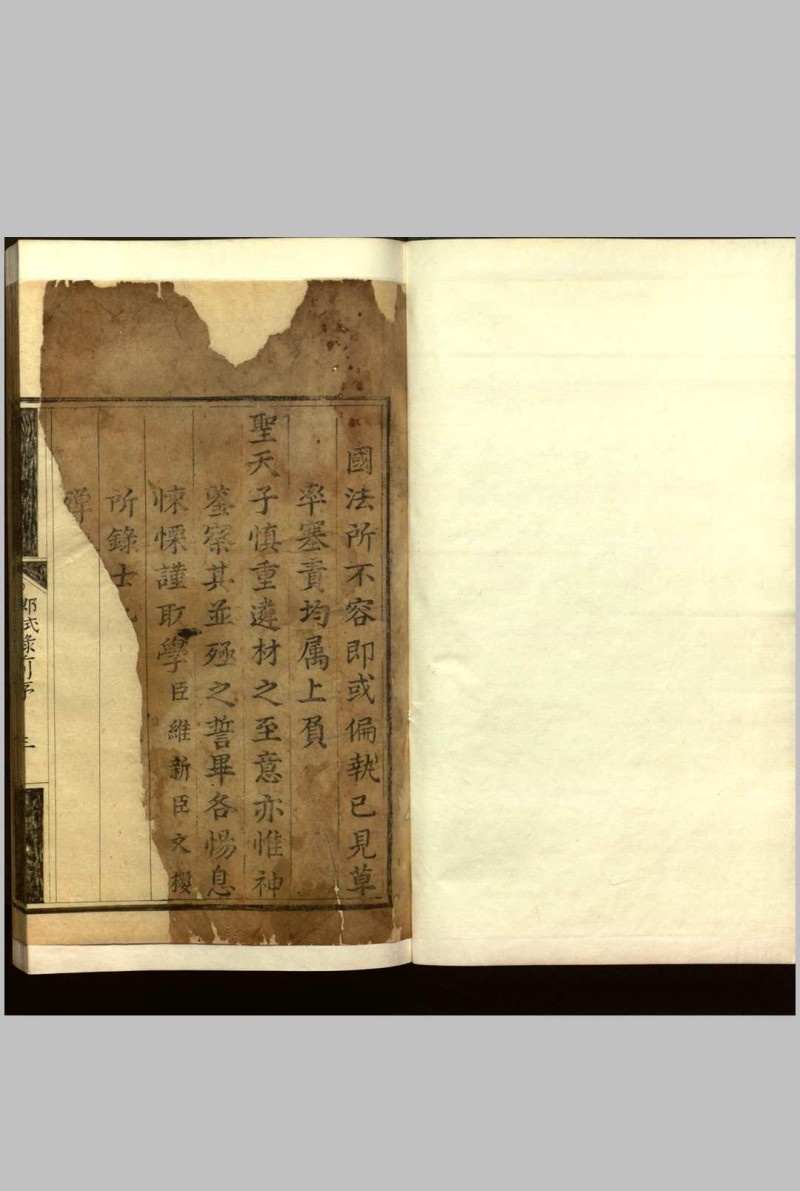 國法所不容即或偏執已見草
率塞責均属上負
聖天子慎重遴材之至意亦惟神
鉴察其並殛之誓畢各惕息
悚慄謹取學臣維新臣文櫻
所錄士
序
三